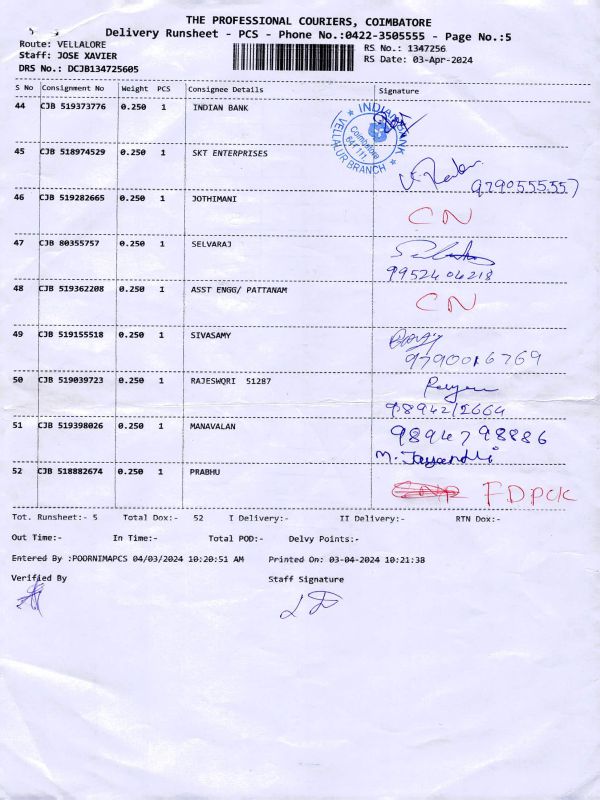 THE PROFESSIONAL COURIERS, COIMBATORE
Delivery Runsheet - PCS - Phone No.:0422-3505555 - Page No.:5
Route: VELLALORE
RS No.: 1347256
Staff: JOSE XAVIER
RS Date: 03-Apr-2024
DRS No.: DCJB134725605
S No Consignment No Weight PCS Consignee Details Signature
44 CJB 519373776 0.250 1 INDIAN BANK
INDIAN BANK
Coimbatore
641 111
VELLALUR BRANCH
45 CJB 518974529 0.250 1 SKT ENTERPRISES
9790555557
46 CJB 519282665 0.250 1 JOTHIMANI
CN
47 CJB 80355757 0.250 1 SELVARAJ
9952404218
48 CJB 519362208 0.250 1 ASST ENGG/ PATTANAM
CN
49 CJB 519155518 0.250 1 SIVASAMY
9790016769
50 CJB 519039723 0.250 1 RAJESWQRI 51287
9894212664
51 CJB 519398026 0.250 1 MANAVALAN
9894798886
M. Jayandhi
52 CJB 518882674 0.250 1 PRABHU
FDPCK
Tot. Runsheet:- 5 Total Dox:- 52 I Delivery:- II Delivery:- RTN Dox:-
Out Time:- In Time:- Total POD:- Delvy Points:-
Entered By :POORNIMAPCS 04/03/2024 10:20:51 AM Printed On: 03-04-2024 10:21:38
Verified By Staff Signature